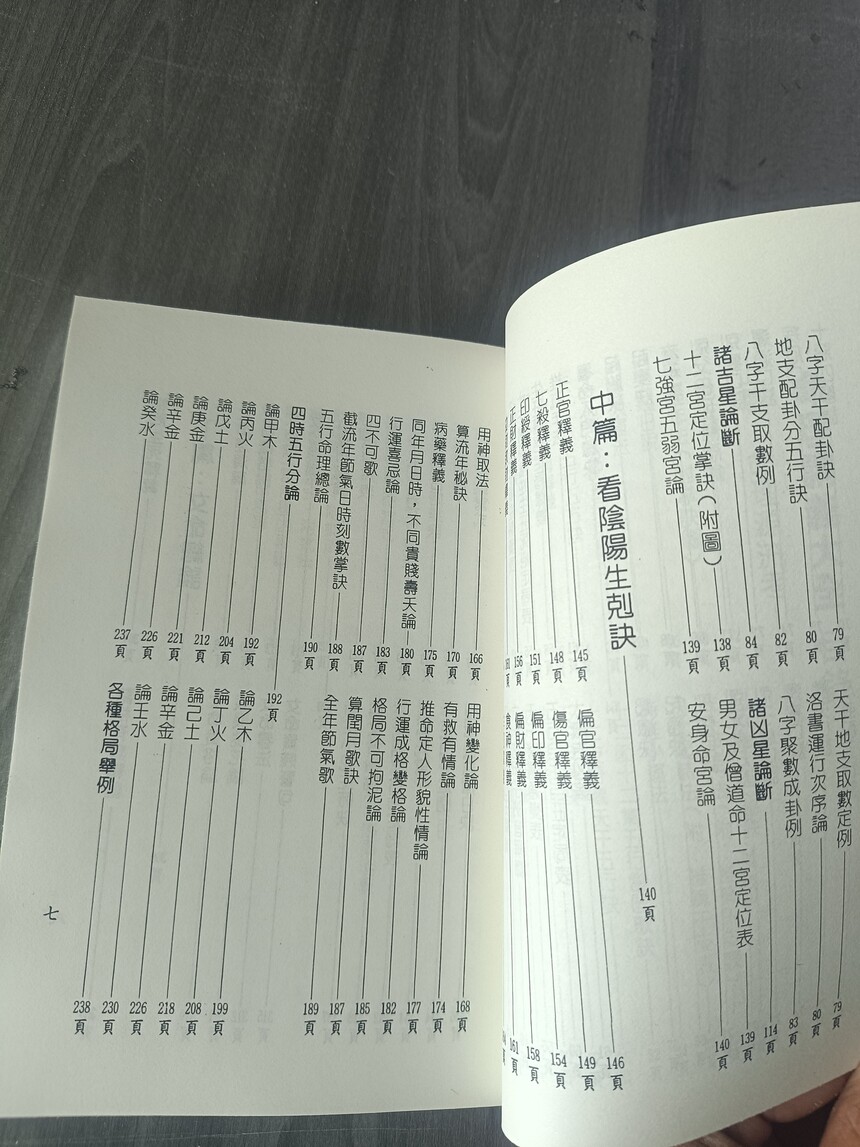 八字天干配卦訣 79頁
天干地支取數定例 79頁
地支配卦分五行訣 80頁
洛書運行次序論 80頁
八字干支取數例 82頁
八字聚數成卦例 83頁
諸吉星論斷 84頁
諸凶星論斷 114頁
十二宮定位掌訣(附圖) 138頁
男女及僧道命十二宮定位表 139頁
七強宮五弱宮論 139頁
安身命宮論 140頁
中篇:看陰陽生剋訣 140頁
正官釋義 145頁
偏官釋義 146頁
七殺釋義 148頁
傷官釋義 149頁
印綬釋義 151頁
偏印釋義 154頁
正財釋義 156頁
偏財釋義 158頁
釋義 161頁
用神取法 166頁
用神變化論 168頁
算流年秘訣 170頁
有救有情論 174頁
病藥釋義 175頁
推命定人形貌性情論 177頁
同年月日時,不同貴賤壽夭論 180頁
行運成格變格論 182頁
行運喜忌論 183頁
格局不可拘泥論 185頁
四不可歌 187頁
算閏月歌訣 187頁
截流年節氣日時刻數掌訣 188頁
全年節氣歌 189頁
五行命理總論 190頁
四時五行分論 192頁
論甲木 192頁
論乙木 199頁
論丙火 204頁
論丁火 208頁
論戊土 212頁
論己土 218頁
論庚金 221頁
論辛金 226頁
論辛金 226頁
論壬水 230頁
論癸水 237頁
各種格局舉例 238頁
七